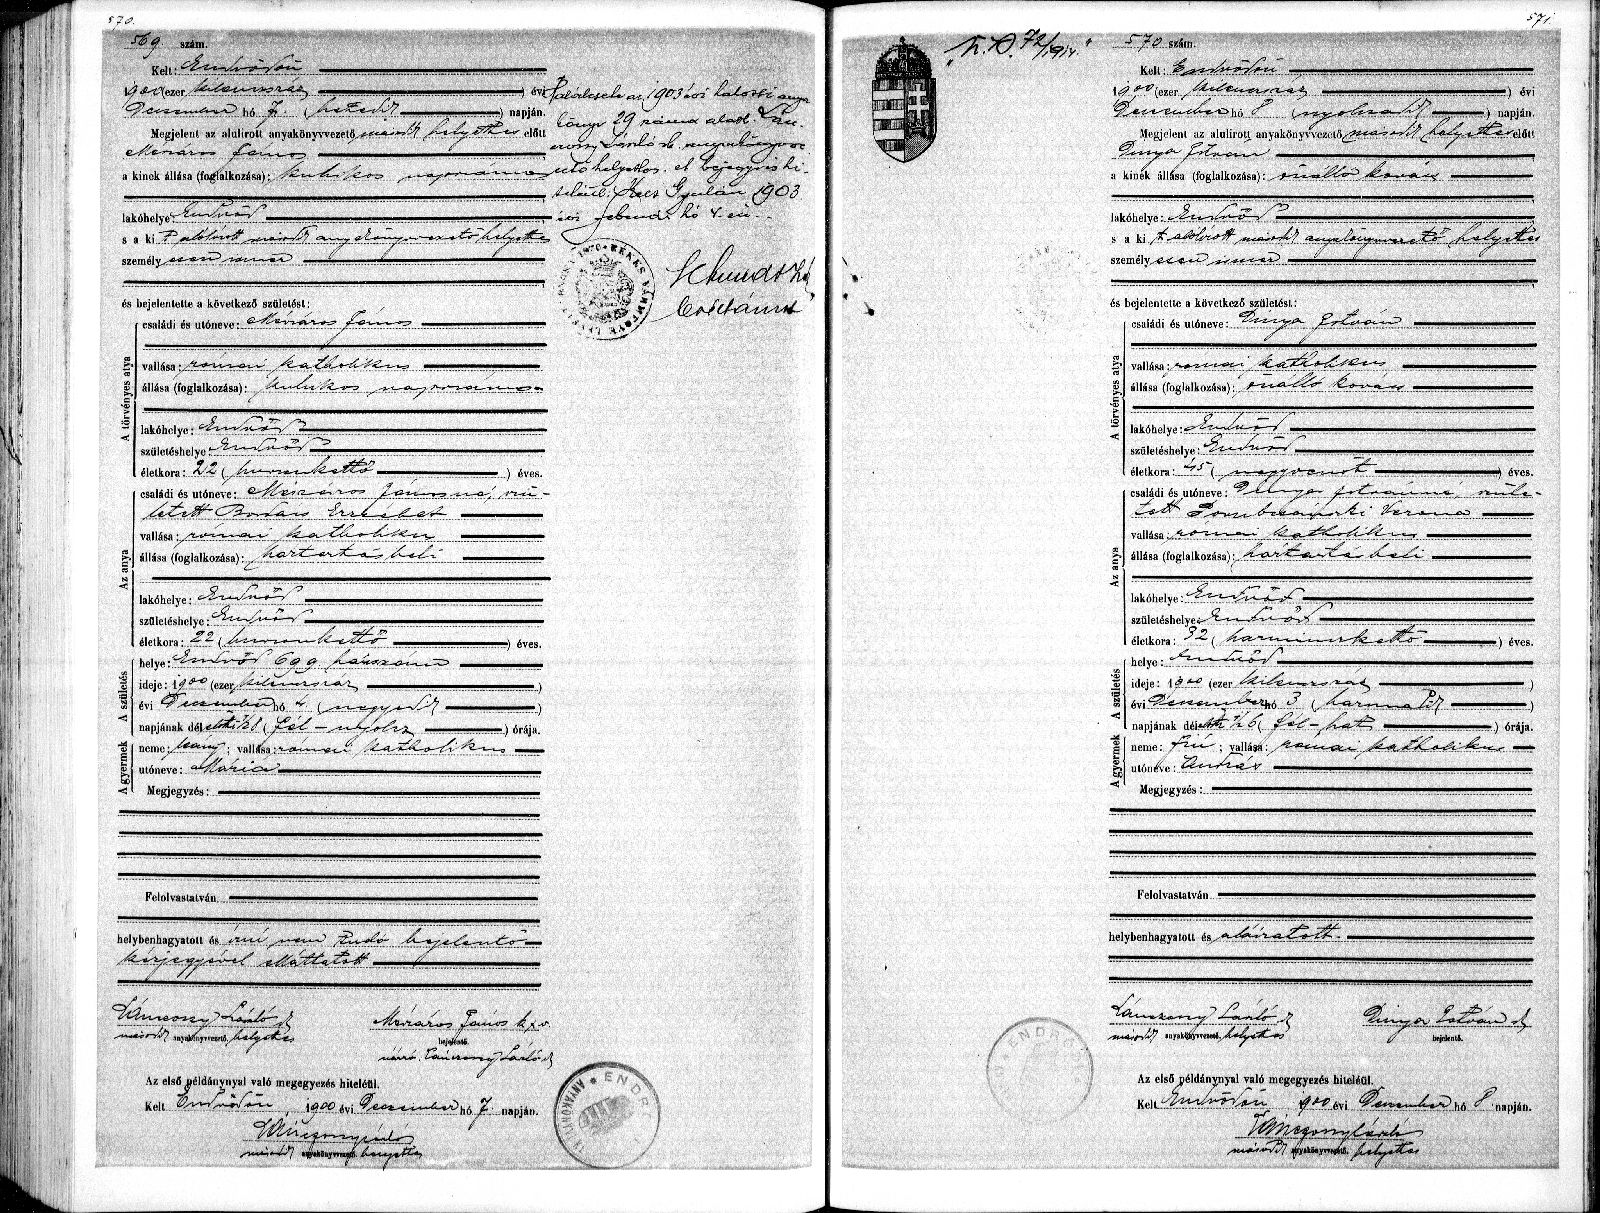 570.
569 szám.
Kelt: Endrődön
1900 (ezer kilenczszáz) évi
December hó 7. (hetedik) napján.
Megjelent az alulirott anyakönyvvezető második helyettes előtt
Mészáros János
a kinek állása (foglalkozása): kubikos napszámos
lakóhelye: Endrőd
s a ki t alólirott második anyakönyvvezető helyettes
személyesen ismer
és bejelentette a következő születést:
A törvényes atya
családi és utóneve: Mészáros János
vallása: római katholikus
állása (foglalkozása): kubikos napszámos
lakóhelye: Endrőd
születéshelye Endrőd
életkora: 22 (huszonkettő) éves.
Az anya
családi és utóneve: Mészáros Jánosné, szü-
letett Erzsébet
vallása: római katholikus
állása (foglalkozása): háztartásbeli
lakóhelye: Endrőd
születéshelye: Endrőd
életkora: 22 (huszonkettő) éves.
A születés
helye: Endrőd 699 házszám
ideje: 1900 (ezer kilenczszáz)
évi December hó 4 (negyedik)
napjának délelőtti ½8 (fél-nyolcz) órája.
A gyermek
neme: leány; vallása: római katholikus
utóneve: Mária
Megjegyzés:
Felolvastatván
helybenhagyatott és irni nem tudó bejelentő
kézjegyével elláttatott
Lánczony László sk
második anyakönyvvezető, helyettes
Mészáros János k.z.v.
bejelentő.
névíró, Lánczony László sk
Az első példánynyal való megegyezés hiteléül.
Kelt Endrődön, 1900 évi December hó 7. napján.
Lánczony László
második anyakönyvvezető. helyettes
ANYAKÖNYVI ENDRŐD
az 1903 évi halotti anya
könyv 29 száma alatt Lán-
László sk. anyakönyvve
zető helyettes. A bejegyzés hi-
teléül: Gyulán 1903
évi február hó 4-én.
BÉKÉS VÁRMEGYE
571.
72/1914.
570 szám.
Kelt: Endrődön
1900 (ezer kilenczszáz) évi
December hó 8 (nyolczadik) napján.
Megjelent az alulirott anyakönyvvezető második helyettes előtt
Dinya István
a kinek állása (foglalkozása): önálló kovács
lakóhelye: Endrőd
s a ki t alólirott második anyakönyvvezető helyettes
személyesen ismer
és bejelentette a következő születést:
A törvényes atya
családi és utóneve: Dinya István
vallása: római katholikus
állása (foglalkozása): önálló kovács
lakóhelye: Endrőd
születéshelye: Endrőd
életkora: 45 (negyvenöt) éves.
Az anya
családi és utóneve: Dinya Istvánné, szüle-
tett Verona
vallása: római katholikus
állása (foglalkozása): háztartásbeli
lakóhelye: Endrőd
születéshelye: Endrőd
életkora: 32 (harminczkettő) éves.
A születés
helye: Endrőd
ideje: 1900 (ezer kilenczszáz)
évi December hó 3 (harmadik)
napjának délelőtti ½6 (fél-hat) órája.
A gyermek
neme: fiú; vallása: római katholikus
utóneve: András
Megjegyzés:
Felolvastatván
helybenhagyatott és aláiratott.
Lánczony László sk
második anyakönyvvezető, helyettes
Dinya István sk
bejelentő.
Az első példánynyal való megegyezés hiteléül.
Kelt Endrődön 1900 évi December hó 8 napján.
Lánczony László
második anyakönyvvezető. helyettes